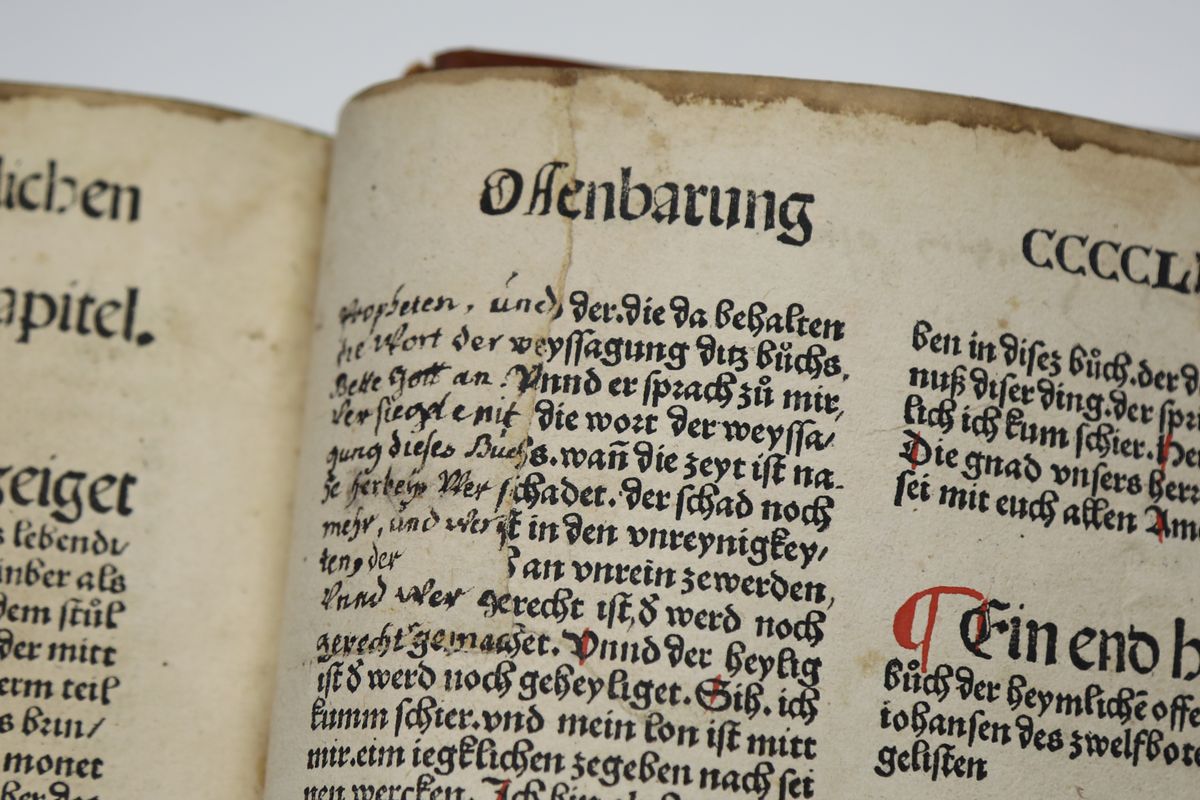 lichen
apitel.
zeiget
s lebendi/
inber als
dem stůl
der mitt
erm teil
s brun/
monet
Offenbarung
CCCCL
Propheten, und der.die da behalten
die Wort der weyssagung ditz bůchs.
Bette Gott an. Vnnd er sprach zů mir,
Versiegle nit die wort der weyssa/
gung dieses Buchs.wañ die zeyt ist na-
he herbey. Wer schadet.der schad noch
mehr, und wer ist in den vnreynigkey/
ten, der an vnrein zewerden,
Vnnd Wer gerecht ist,d̕ werd noch
gerecht gemachet. Vnnd der heylig
ist d̕ werd noch geheyliget. Sih. ich
kumm schier.vnd mein lon ist mitt
mir.eim iegklichen zegeben nach sei
nen wercken. Ich bin
ben in disez bůch.der d
nuß diser ding.der spr
lich ich kum schier. Her
Die gnad vnsers herr
sei mit euch allen Am
Ein end h
bůch der heymlichē offe
iohansen des zwelfbot
gelisten